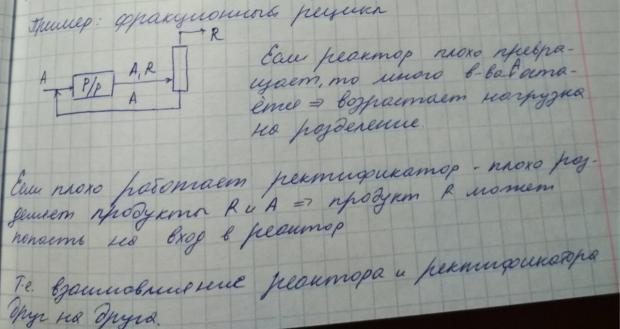 Пример: фракционный рецикл
R
A
Р/р
A, R
A
Если реактор плохо превра-
щает, то много в-ва A оста-
ётся => возрастает нагрузка
на разделение.
Если плохо работает ректификатор - плохо раз-
деляет продукты R и A => продукт R может
попасть на вход в реактор
Т.е. взаимовлияние реактора и ректификатора
друг на друга.